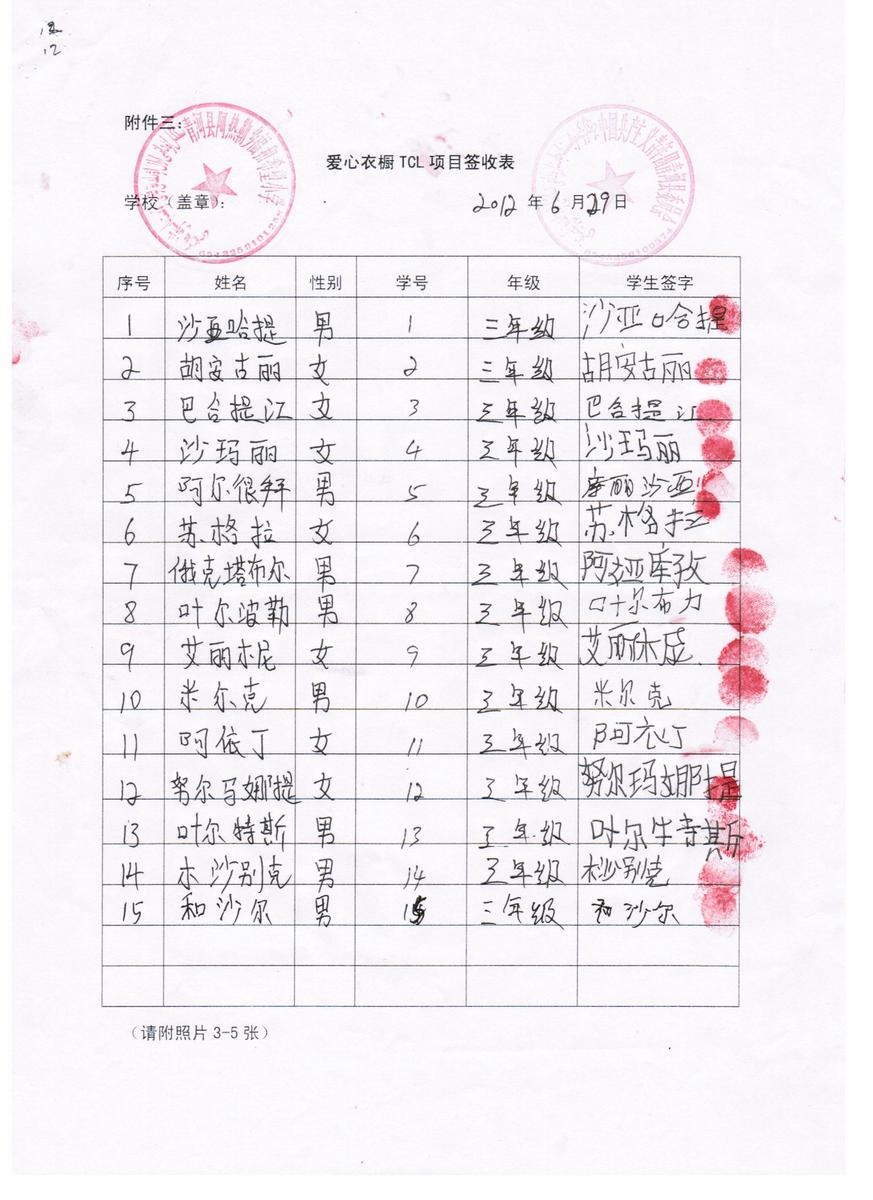 12
附件三:
爱心衣橱 TCL 项目签收表
学校（盖章）: 2012 年 6 月 29 日
序号 姓名 性别 学号 年级 学生签字
1 沙亚哈提 男 1 三年级 沙亚哈提
2 胡安古丽 女 2 三年级 胡安古丽
3 巴合提江 女 3 三年级 巴合提江
4 沙玛丽 女 4 三年级 沙玛丽
5 阿尔很拜 男 5 三年级 丽沙亚
6 苏格拉 女 6 三年级 苏格拉
7 俄克塔布尔 男 7 三年级
8 叶尔波勒 男 8 三年级 叶尔布力
9 艾丽木尼 女 9 三年级 艾丽
10 米尔克 男 10 三年级 米尔克
11 阿依丁 女 11 三年级 阿衣丁
12 努尔马娜提 女 12 三年级 努尔玛娜提
13 叶尔特斯 男 13 三年级 叶尔特斯
14 木沙别克 男 14 三年级 木沙别克
15 和沙尔 男 15 三年级 和沙尔
（请附照片 3-5 张）